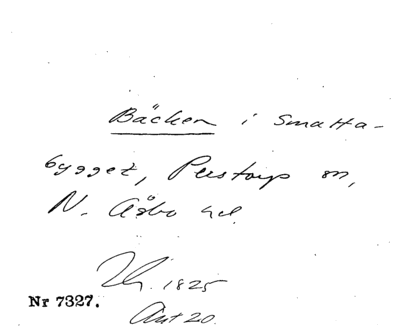 Bäcken i Smatta-
bygget, Perstorp sn,
N. Åsbo hd.
1825
Nr 7327.
Akt 20.